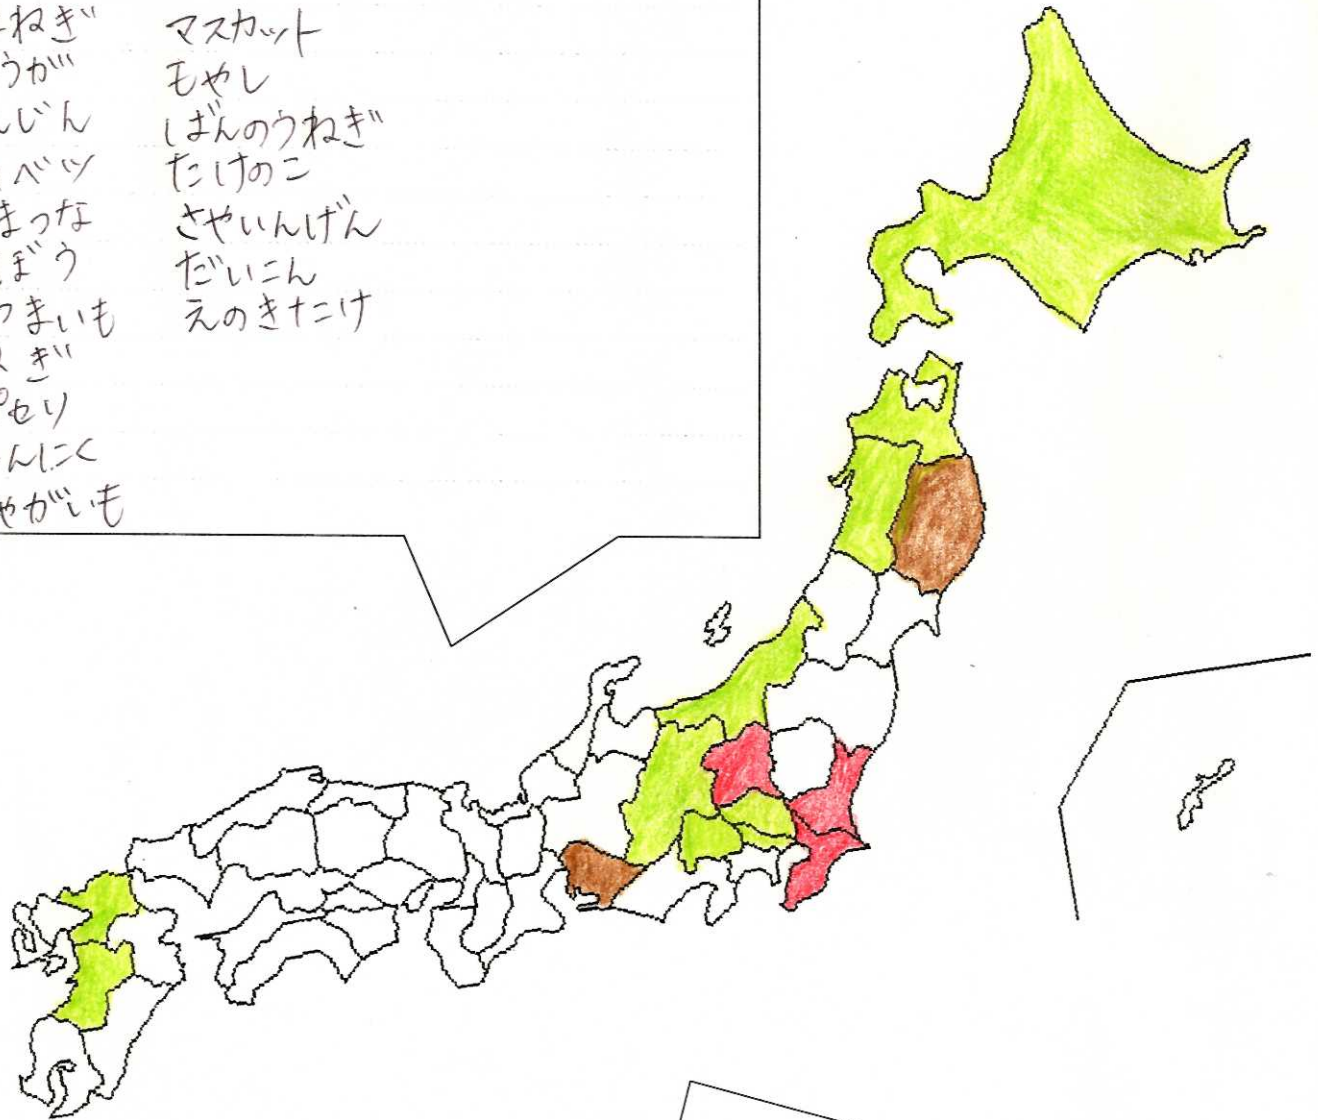 ねぎ
うが
んじん
ベツ
まつな
ぼう
つまいも
ぎ
セリ
んにく
ゃがいも
マスカット
もやし
ばんのうねぎ
たけのこ
さやいんげん
だいこん
えのきたけ